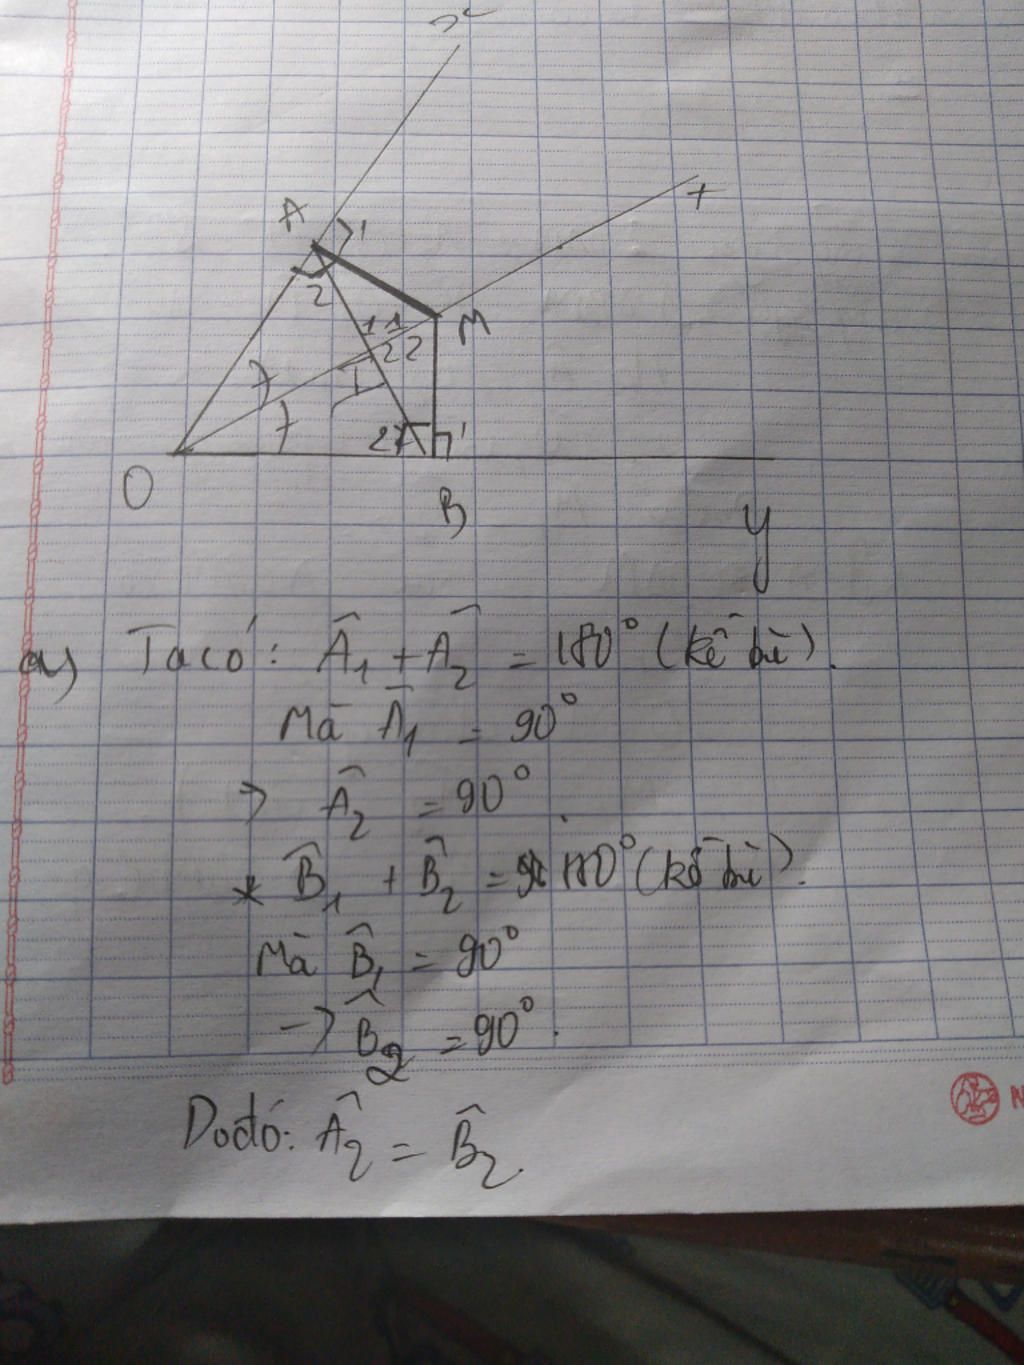 x
A
1
t
2
1 1
M
2 2
I
2 1
1
O
B
y
a) Ta có: Â₁ + Â₂ = 180° (kề bù).
Mà Â₁ = 90°
=> Â₂ = 90°.
* B̂₁ + B̂₂ = 180° (kề bù).
Mà B̂₁ = 90°
-> B̂₂ = 90°.
Do đó: Â₂ = B̂₂.